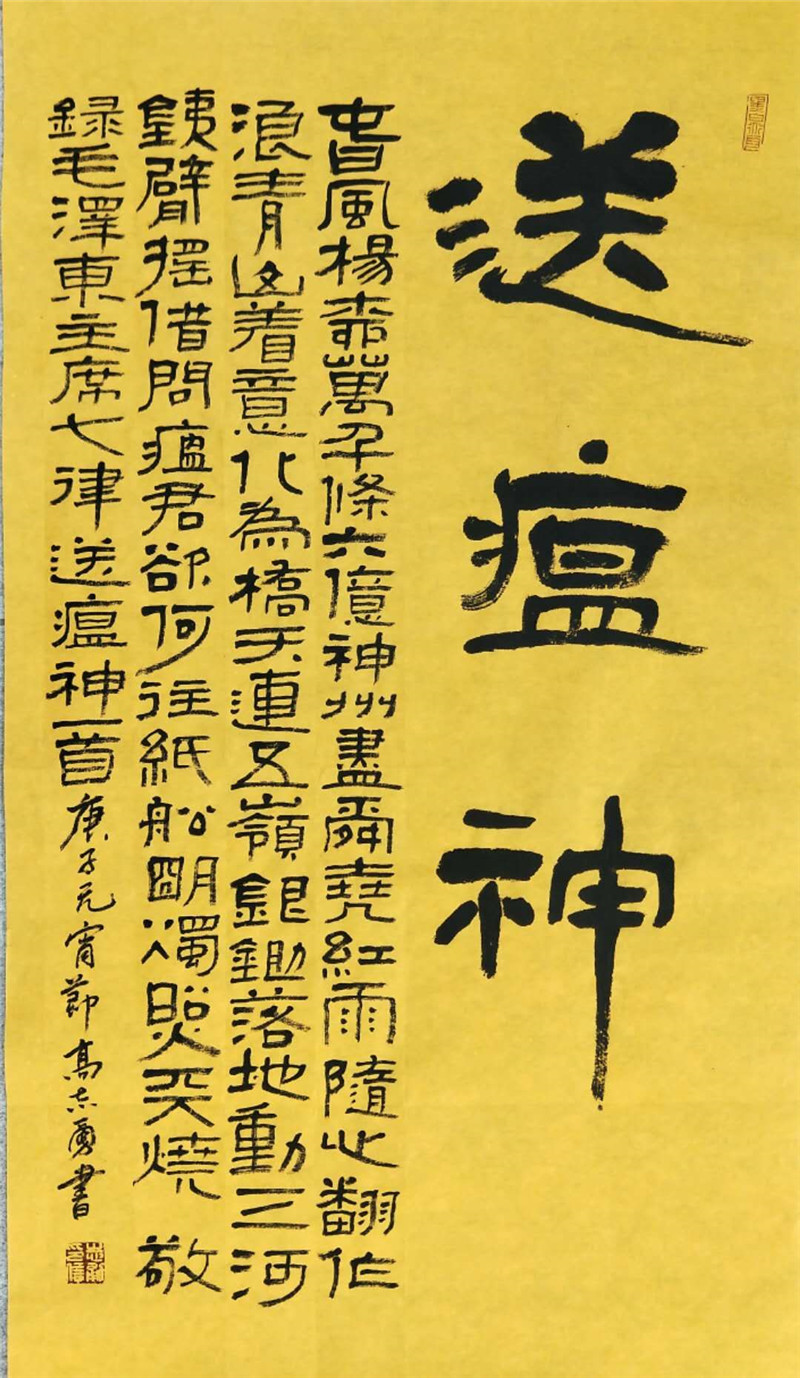 送瘟神
春風楊柳萬千條六億神州盡舜堯紅雨隨心翻作
浪青山着意化為橋天連五嶺銀鋤落地動三河
鐵臂搖借問瘟君欲何往紙船明燭照天燒 敬
録毛澤東主席七律送瘟神一首庚子元宵節高志勇書